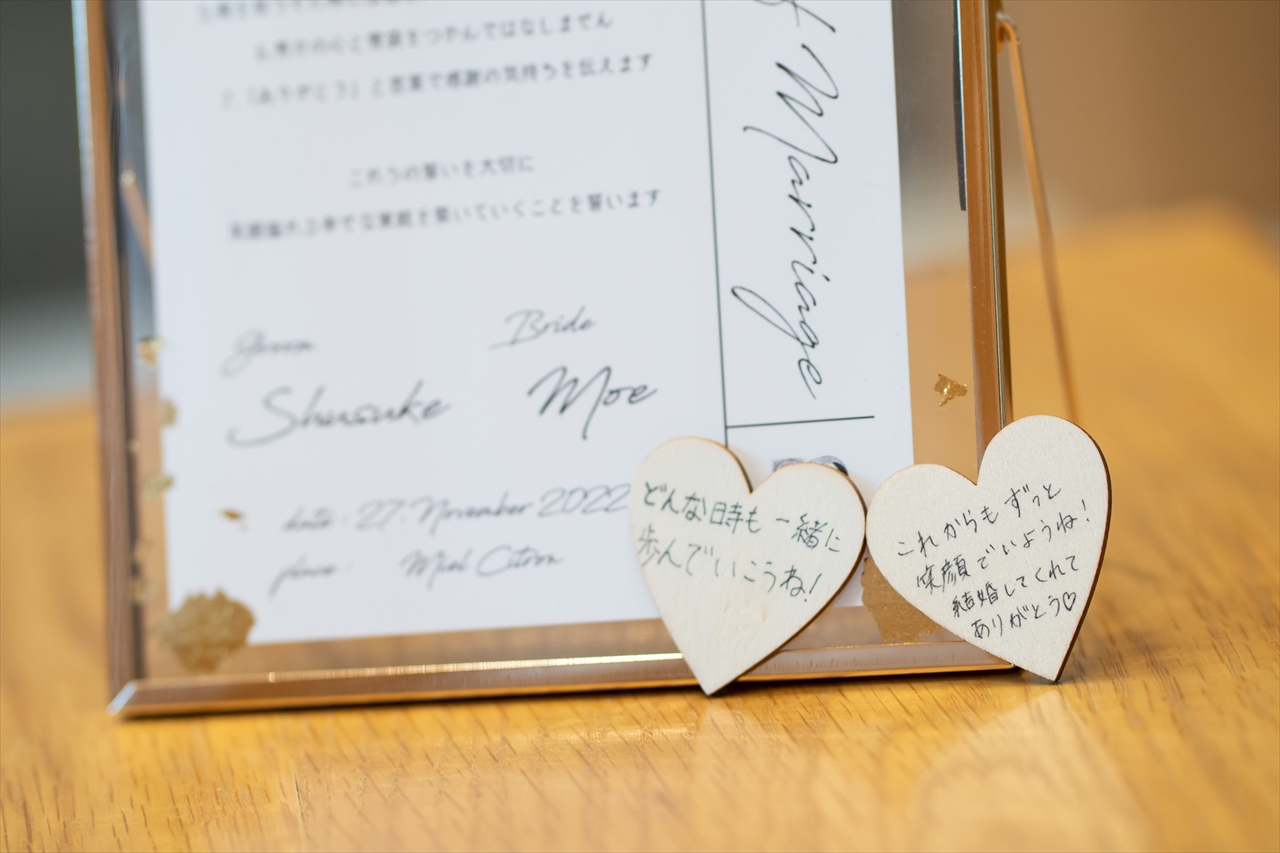 「ありがとう」と言葉で感謝の気持ちを伝えます
これらの誓いを大切に
笑顔溢れる幸せな家庭を築いていくことを誓います
Groom
Bride
Shusuke
Moe
date : 27. November 2022
place : Miel Citron
Marriage
どんな時も一緒に
歩んでいこうね!
これからもずっと
笑顔でいようね!
結婚してくれて
ありがとう♡